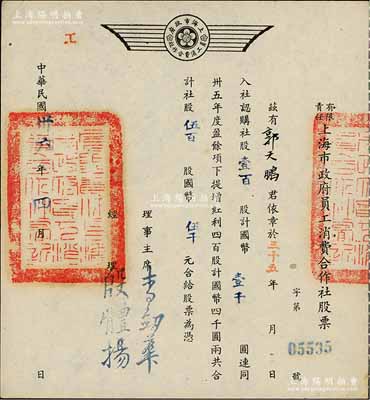 上海市政府
員工消費合作社
工
有限
責任
上海市政府員工消費合作社股票
字第
號
05535
茲有郭天鵬君依章於三十五年 月 日
入社認購社股壹百 股計國幣 壹千 圓連同
卅五年度盈餘項下提增紅利四百股計國幣四千圓兩共合
計社股 伍百 股國幣 伍仟 元合給股票為憑
理事主席
經理 段體揚
中華民國 卅六 年 四 月 日